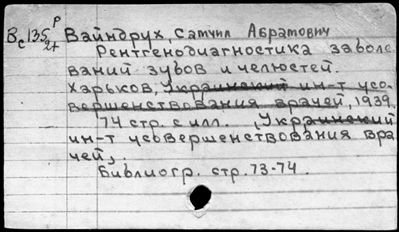 Вс135 р 2т Вайндрух, Самуил Абрамович
Рентгенодиагностика заболе
ваний зубов и челюстей.
Харьков, Украинский ин-т усо-
вершенствования врачей, 1939,
74 стр. с илл. , Украинский
ин-т усовершенствования вра
чей,.
Библиогр. стр. 73-74.